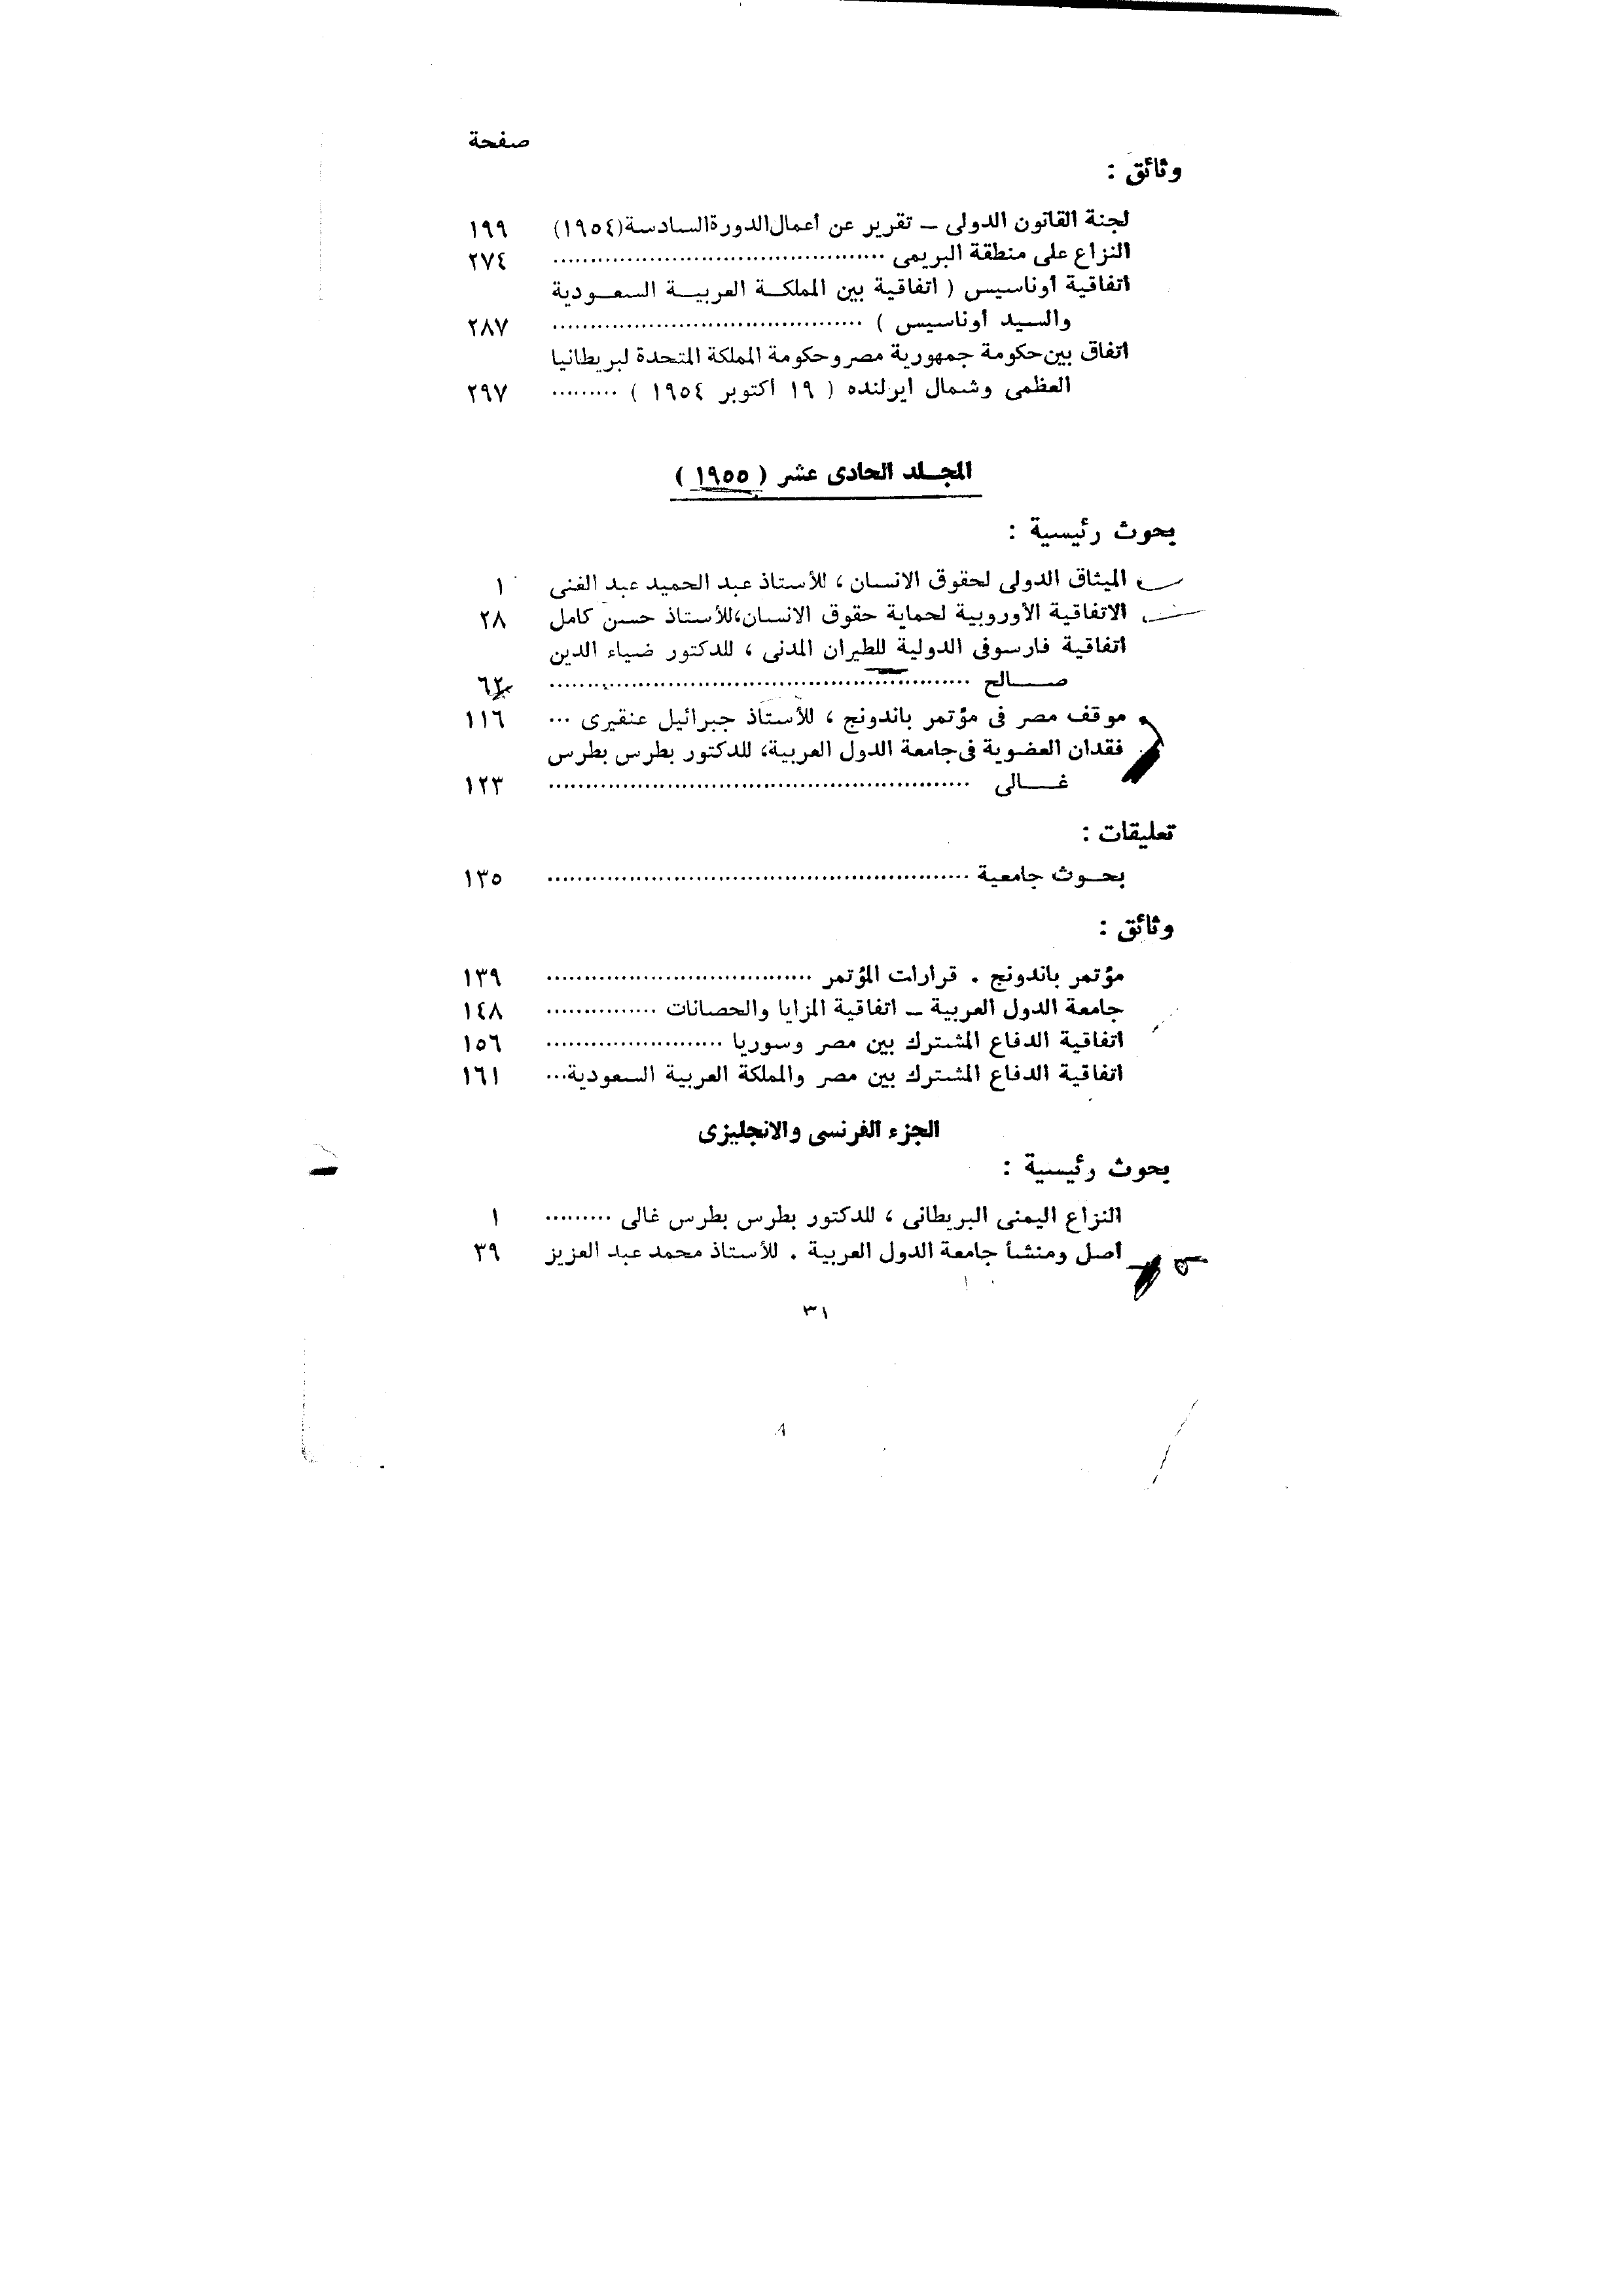 صفحة
وثائق :
لجنة القانون الدولى ــ تقرير عن أعمال الدورة السادسة (١٩٥٤) ١٩٩
النزاع على منطقة البريمى ............................................ ٢٧٤
اتفاقية أوناسيس ( اتفاقية بين المملكة العربية السعودية
والسيد أوناسيس ) ......................................... ٢٨٧
اتفاق بين حكومة جمهورية مصر وحكومة المملكة المتحدة لبريطانيا
العظمى وشمال ايرلنده ( ١٩ اكتوبر ١٩٥٤ ) ......... ٢٩٧
المجلد الحادى عشر ( ١٩٥٥ )
بحوث رئيسية :
الميثاق الدولى لحقوق الانسان ، للأستاذ عبد الحميد عبد الغنى ١
الاتفاقية الأوروبية لحماية حقوق الانسان، للأستاذ حسن كامل ٢٨
اتفاقية فارسوفى الدولية للطيران المدنى ، للدكتور ضياء الدين
صالح ........................................................ ٦٢
موقف مصر فى مؤتمر باندونج ، للأستاذ جبرائيل عنقيرى ... ١١٦
فقدان العضوية فى جامعة الدول العربية، للدكتور بطرس بطرس
غالى ........................................................ ١٢٣
تعليقات :
بحوث جامعية ........................................................ ١٣٥
وثائق :
مؤتمر باندونج . قرارات المؤتمر ................................... ١٣٩
جامعة الدول العربية ــ اتفاقية المزايا والحصانات ............... ١٤٨
اتفاقية الدفاع المشترك بين مصر وسوريا ........................ ١٥٦
اتفاقية الدفاع المشترك بين مصر والمملكة العربية السعودية... ١٦١
الجزء الفرنسى والانجليزى
بحوث رئيسية :
النزاع اليمنى البريطانى ، للدكتور بطرس بطرس غالى ......... ١
أصل ومنشأ جامعة الدول العربية . للأستاذ محمد عبد العزيز ٣٩
٣١